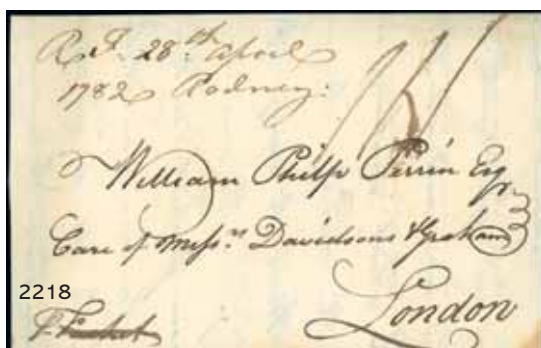 Rd. 28th April
1782 Rodney:
William Philp Perrin Esqr.
Care of Messrs Davidsons & Graham
2218
London